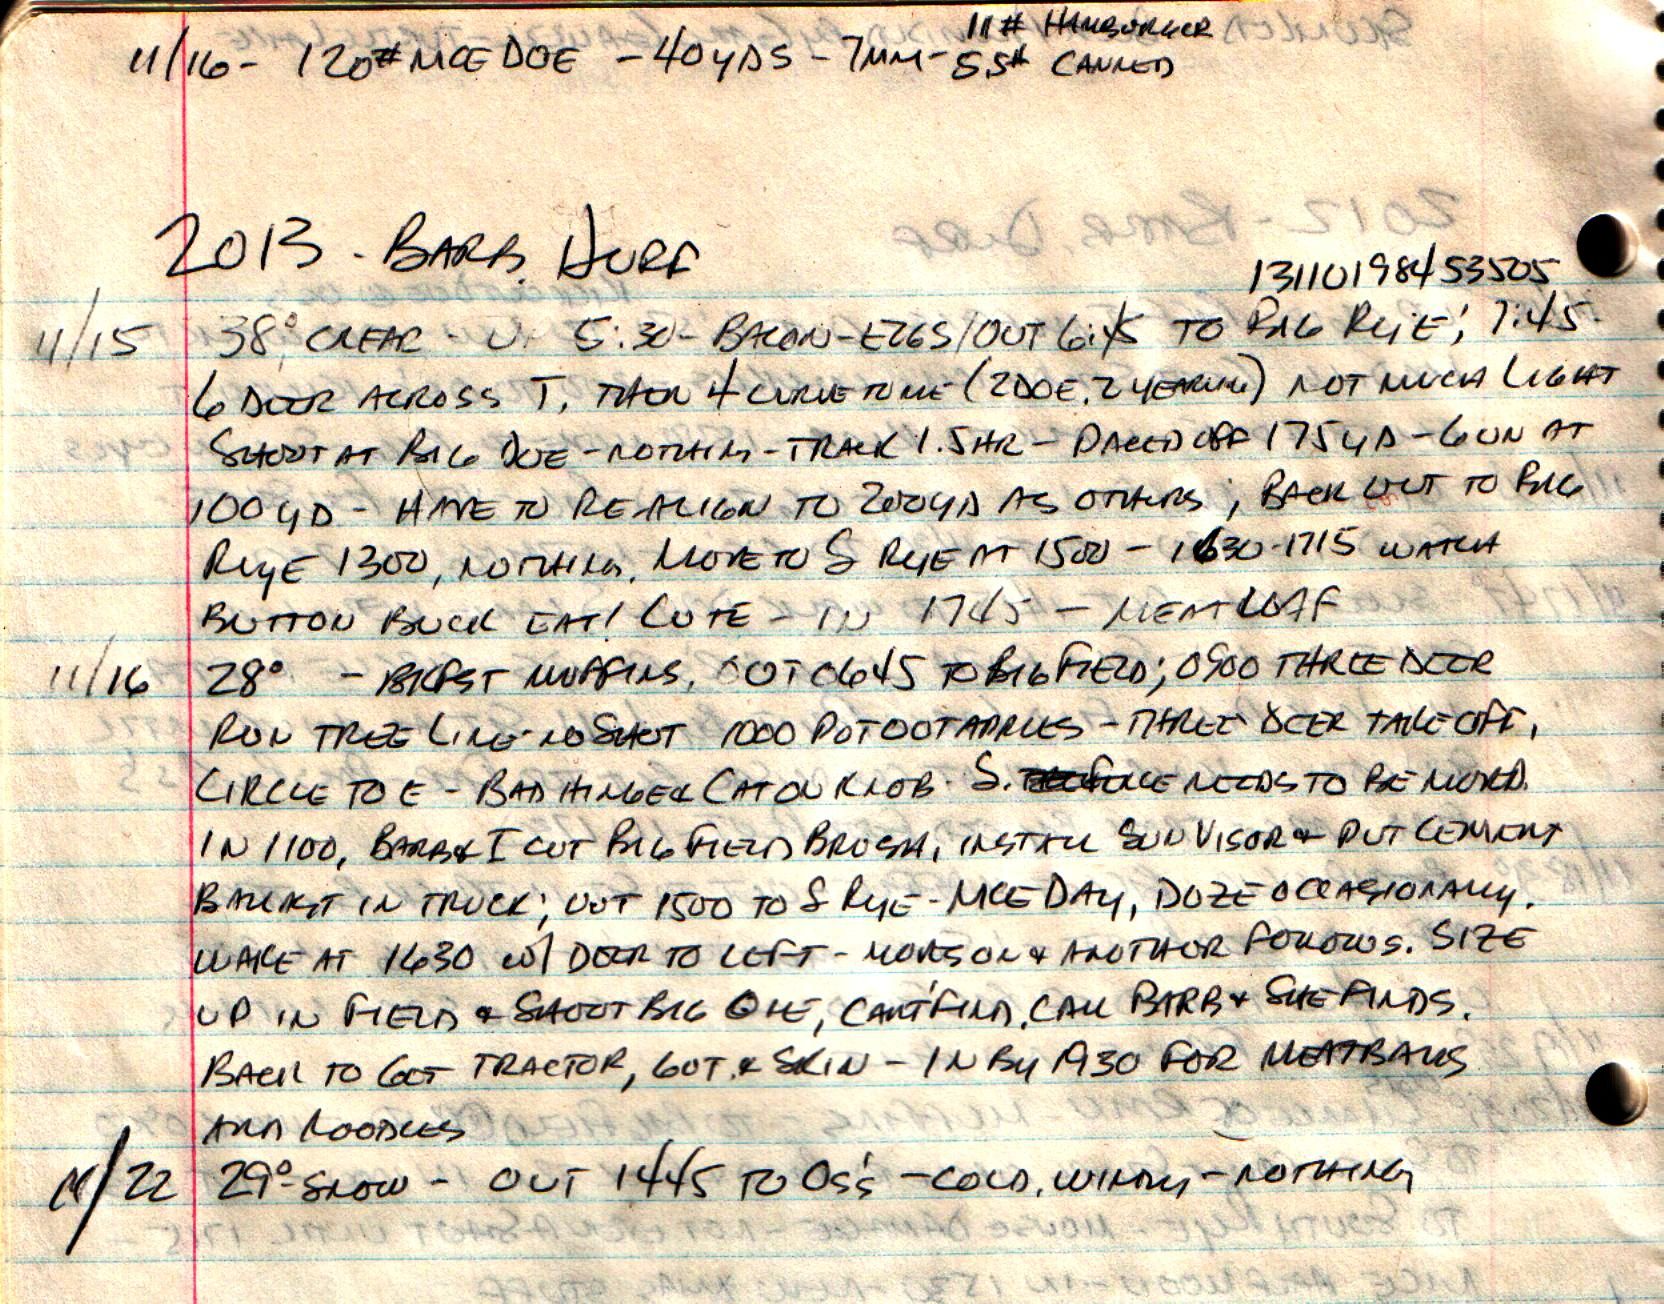 11# HAMBURGER
11/16 - 120# NICE DOE - 40 YDS - 7MM - 5.5# CANNED
2013 - BARB, HURF
131101984 53505
11/15 38° CLEAR - UP 5:30 - BACON - EGGS / OUT 6:45 TO BIG RYE; 7:45
6 DEER ACROSS T, THEN 4 CURVE TO ME (2 DOE, 2 YEARLING) NOT MUCH LIGHT
SHOOT AT BIG DOE - NOTHING - TRACK 1.5 HR - PACED OFF 175 YD - GUN AT
100 YD - HAVE TO RE-ALIGN TO 200 YD AS OTHERS; BACK OUT TO BIG
RYE 1300, NOTHING. MOVE TO S RYE AT 1500 - 1630-1715 WATCH
BUTTON BUCK EAT! CUTE - IN 1745 - MEATLOAF
11/16 28° - BKFST MUFFINS, OUT 0645 TO BIG FIELD; 0900 THREE DEER
RUN TREE LINE - NO SHOT 1000 PUT OUT APPLES - THREE DEER TAKE OFF,
CIRCLE TO E - BAD HINGE & CAT ON KNOB. S. FENCE NEEDS TO BE MOVED.
IN 1100, BARB & I CUT BIG FIELD BRUSH, INSTALL SUN VISOR & PUT CEMENT
BALLAST IN TRUCK; OUT 1500 TO S RYE - NICE DAY, DOZE OCCASIONALLY.
WAKE AT 1630 W/ DEER TO LEFT - MOVES ON & ANOTHER FOLLOWS. SIZE
UP IN FIELD & SHOOT BIG ONE, CAN'T FIND. CALL BARB & SHE FINDS.
BACK TO GET TRACTOR, GUT & SKIN - IN BY 1930 FOR MEATBALLS
AND NOODLES
11/22 29° SNOW - OUT 1445 TO OS'S - COLD, WINDY - NOTHING